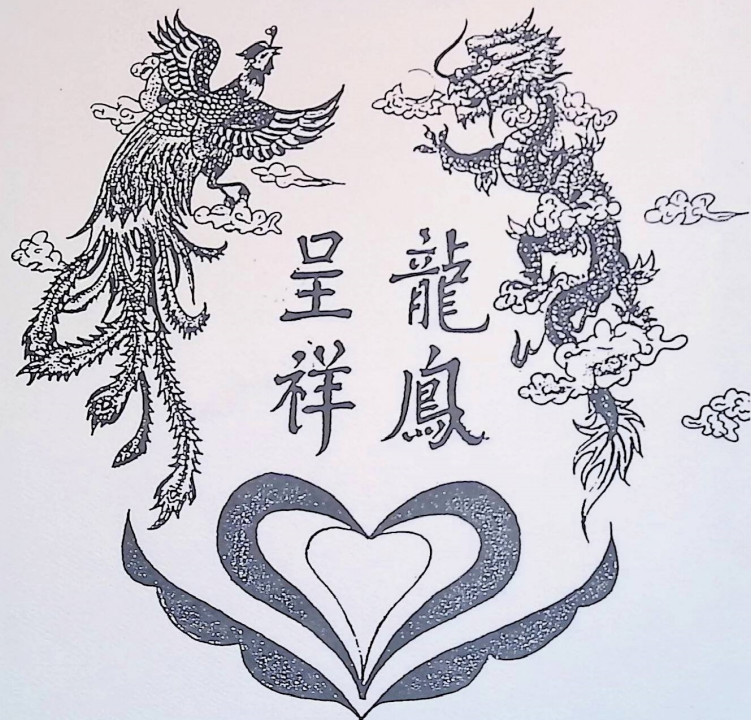 龍鳳
呈祥